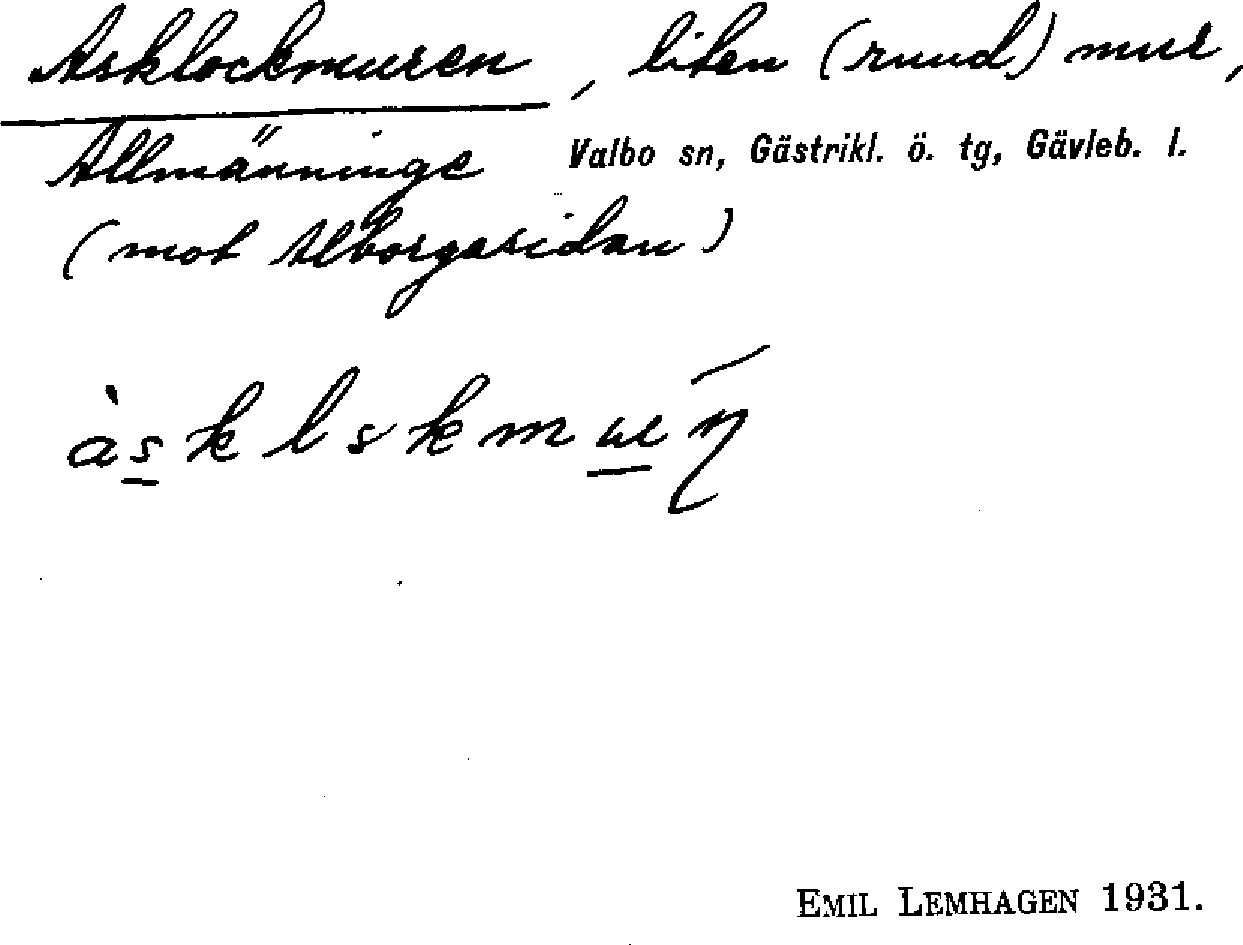 Asklockmuren, liten (rund) mur,
Allmänninge Valbo sn, Gästrikl. ö. tg, Gävleb. l.
(mot Alborgasidan)
EMIL LEMHAGEN 1931.